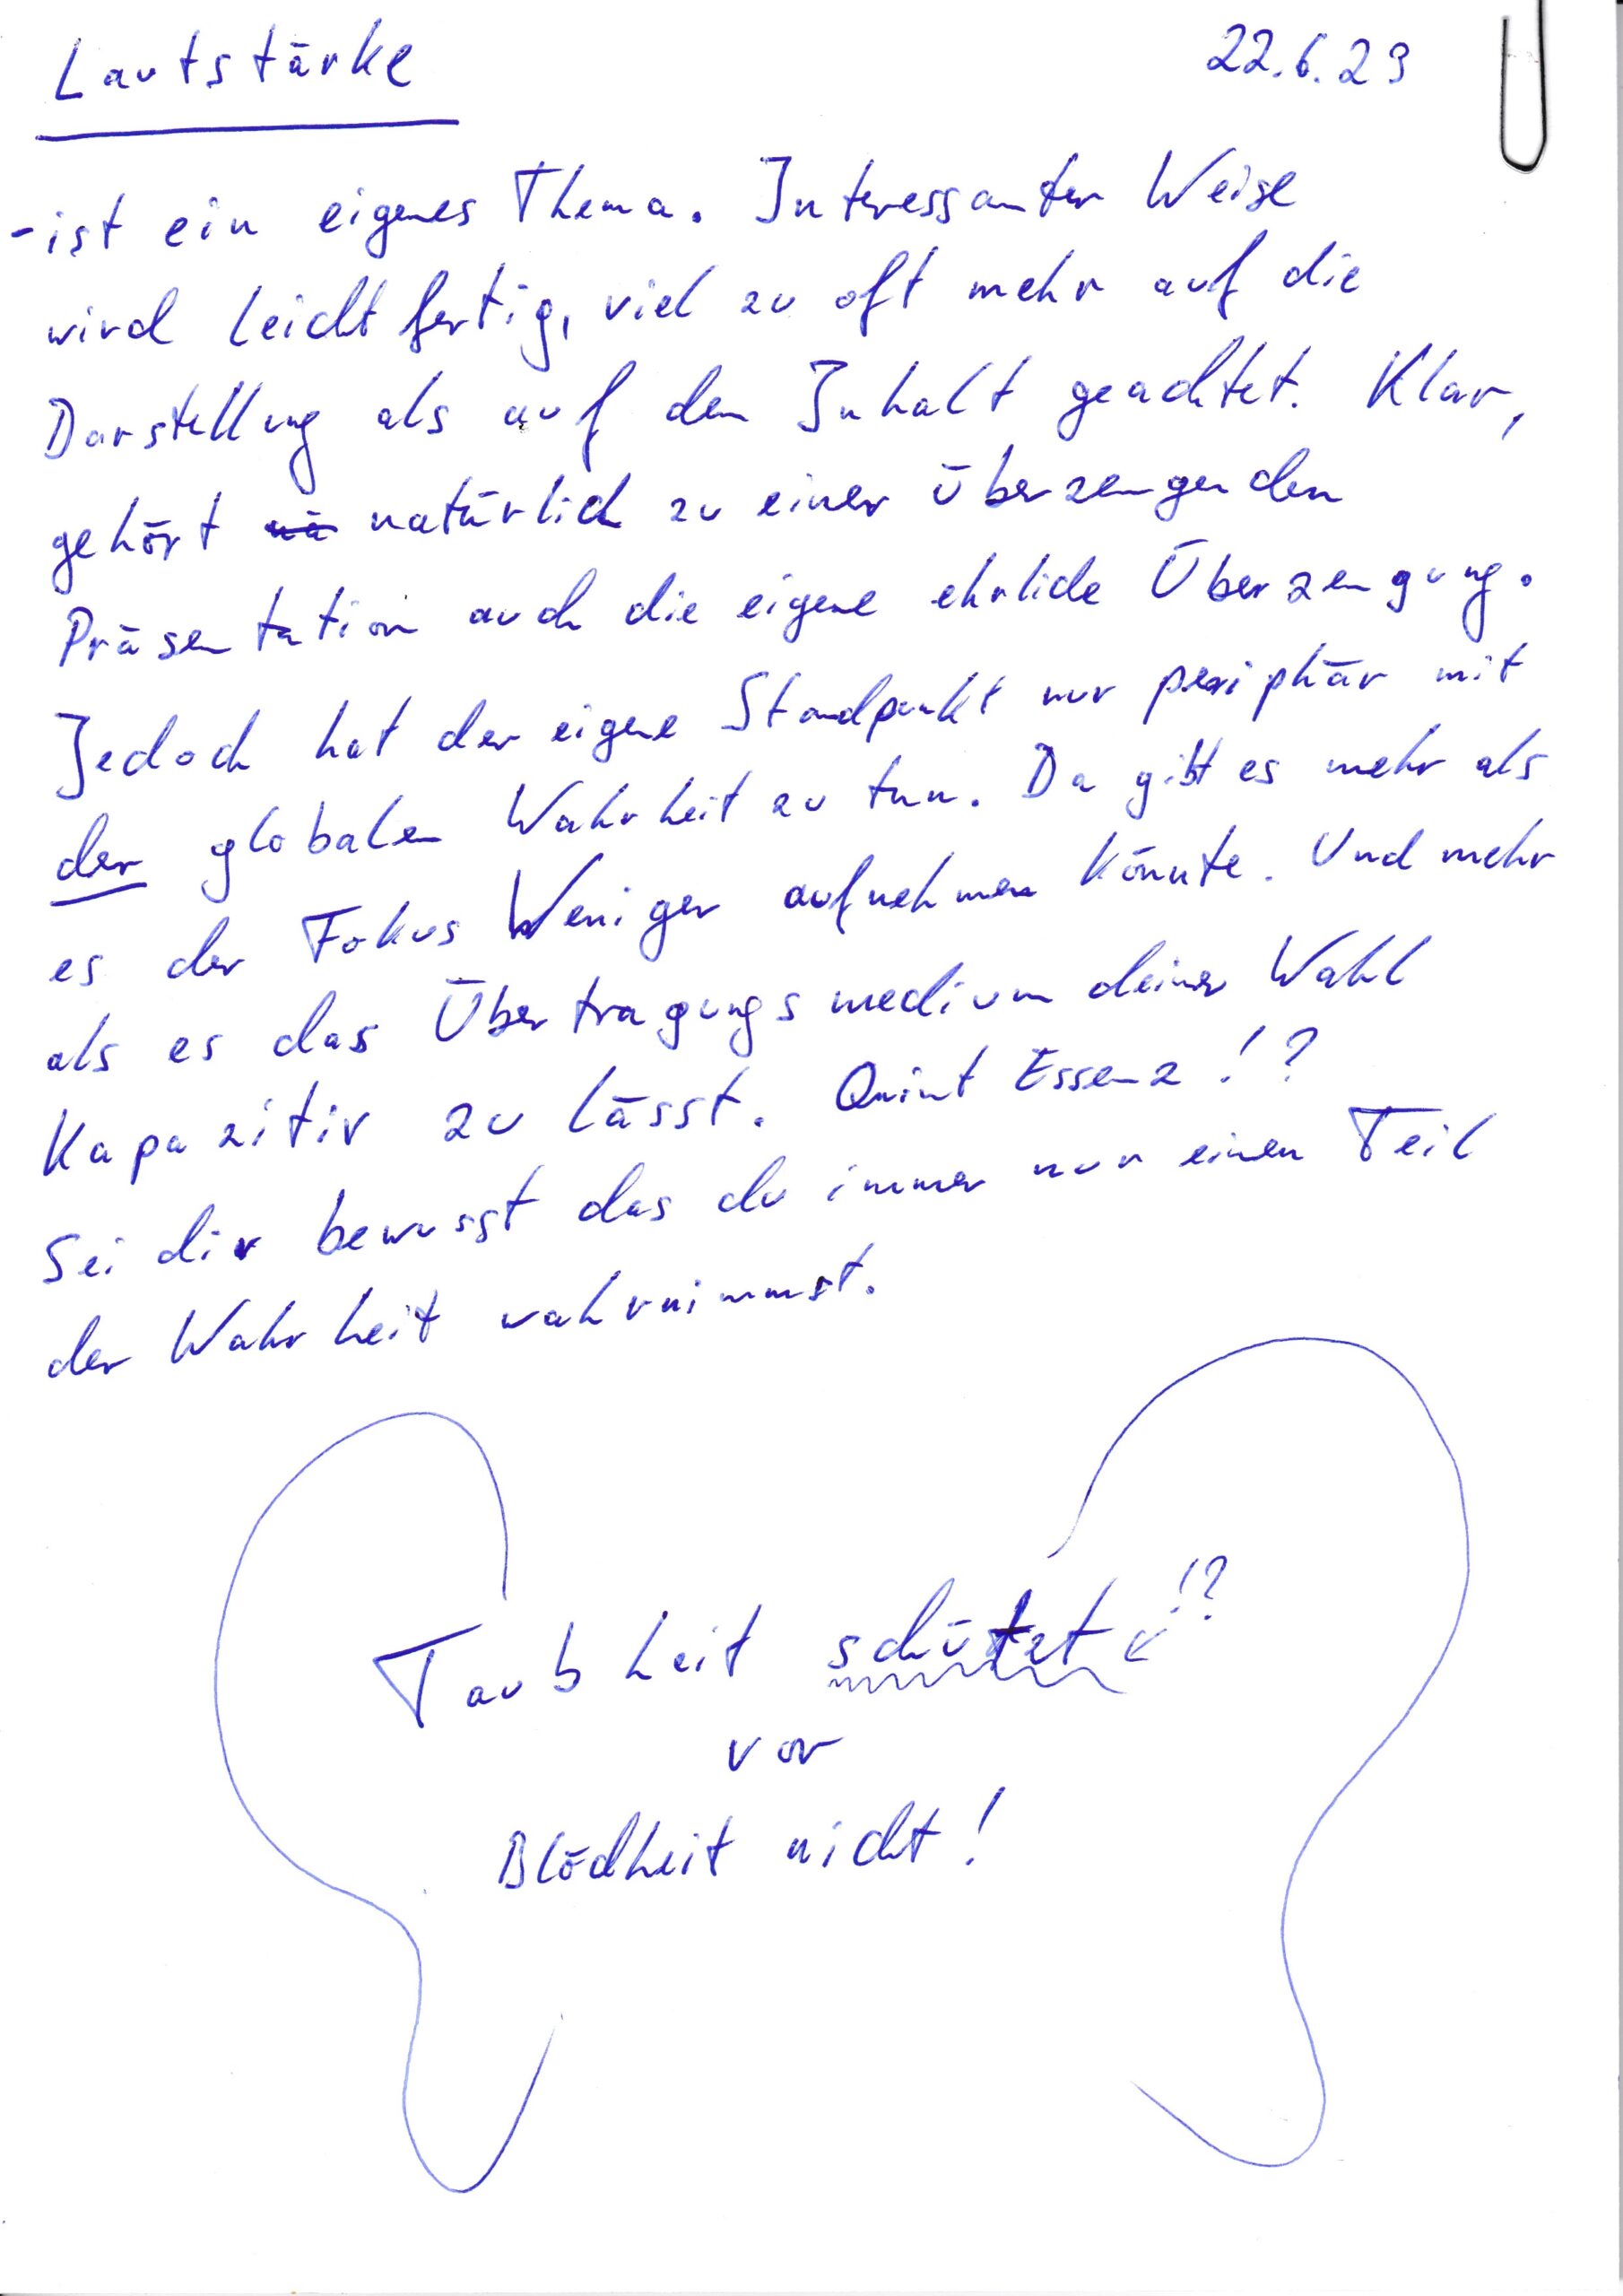 Lautstärke 22.6.23
- ist ein eigenes Thema. Interessanter Weise
wird leichtfertig, viel zu oft mehr auf die
Darstellung als auf den Inhalt geachtet. Klar,
gehört natürlich zu einer überzeugenden
Präsentation auch die eigene ehrliche Überzeugung.
Jedoch hat der eigene Standpunkt nur periphär mit
der globalen Wahrheit zu tun. Da gibt es mehr als
es der Fokus Weniger aufnehmen könnte. Und mehr
als es das Übertragungsmedium deiner Wahl
Kapazitiv zu lässt. Quint Essenz!?
Sei dir bewusst das du immer nur einen Teil
der Wahrheit wahrnimmst.
Taubheit schützt !?
vor
Blödheit nicht!